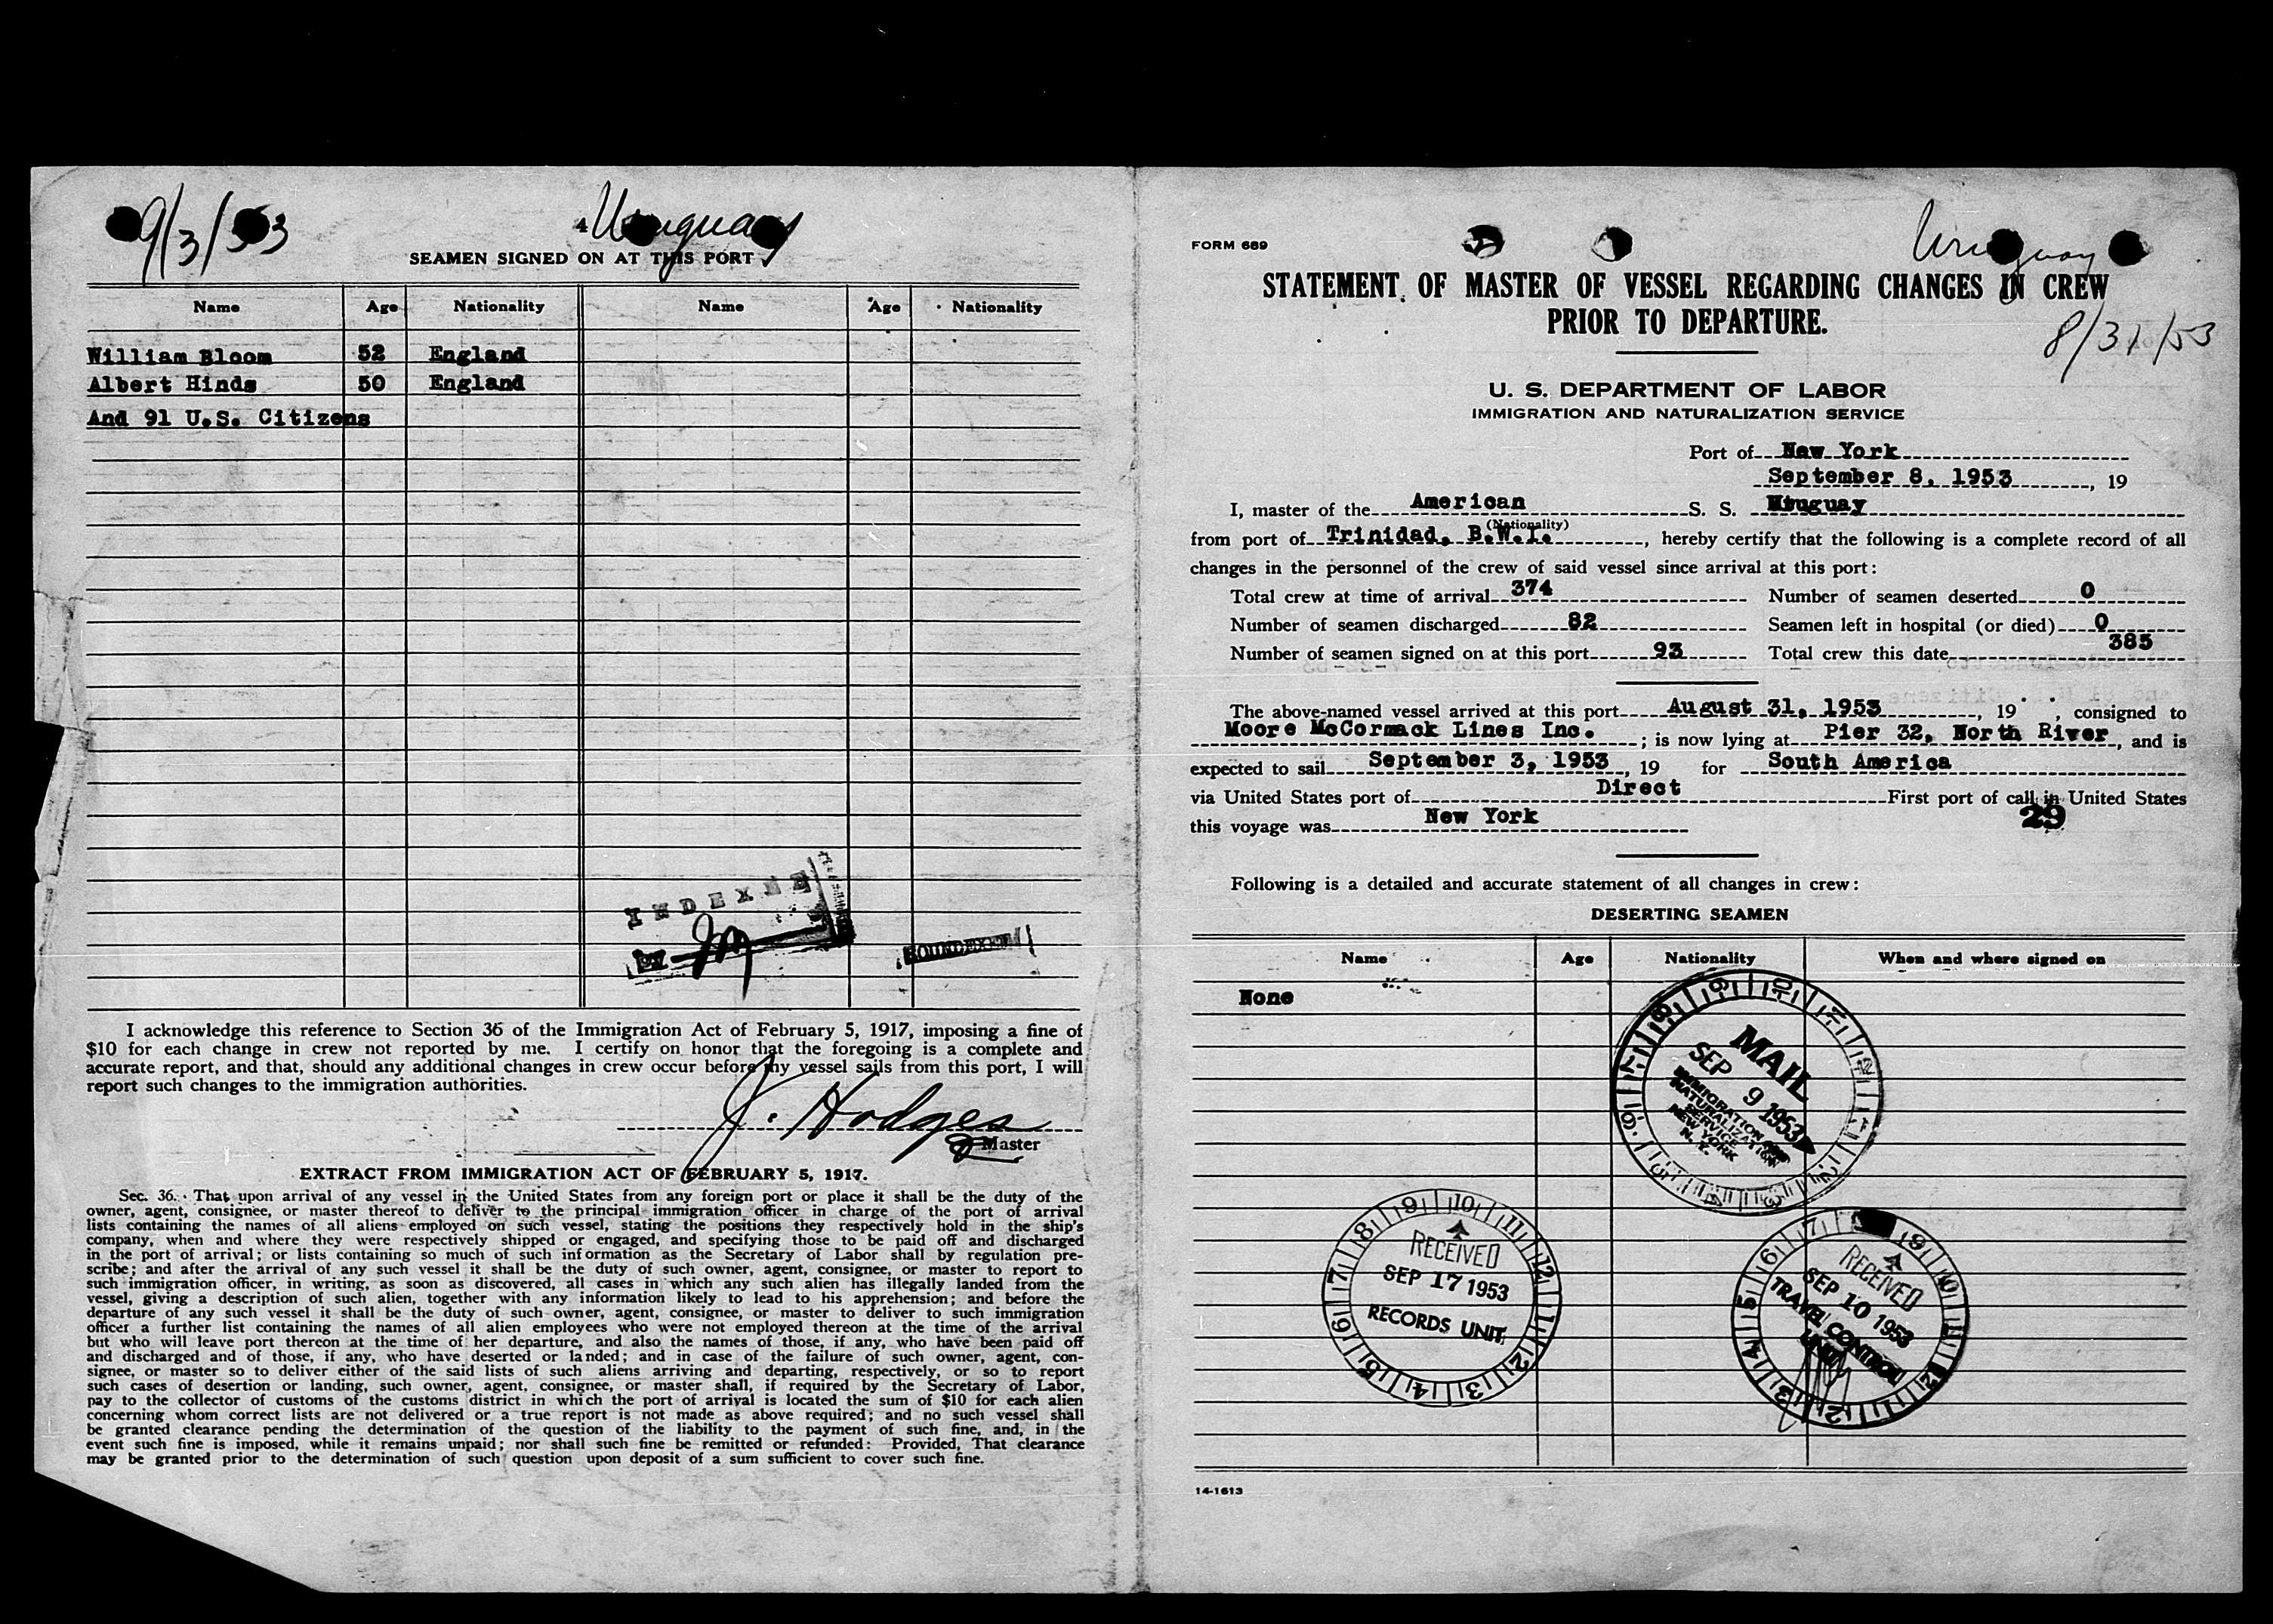 9/3/53
4 Uruguay
SEAMEN SIGNED ON AT THIS PORT
Name Age Nationality Name Age Nationality
William Bloom 52 England
Albert Hinds 50 England
And 91 U.S. Citizens
INDEXED
BY
I acknowledge this reference to Section 36 of the Immigration Act of February 5, 1917, imposing a fine of
$10 for each change in crew not reported by me. I certify on honor that the foregoing is a complete and
accurate report, and that, should any additional changes in crew occur before my vessel sails from this port, I will
report such changes to the immigration authorities.
J. Hodges
Master
EXTRACT FROM IMMIGRATION ACT OF FEBRUARY 5, 1917.
Sec. 36. That upon arrival of any vessel in the United States from any foreign port or place it shall be the duty of the
owner, agent, consignee, or master thereof to deliver to the principal immigration officer in charge of the port of arrival
lists containing the names of all aliens employed on such vessel, stating the positions they respectively hold in the ship's
company, when and where they were respectively shipped or engaged, and specifying those to be paid off and discharged
in the port of arrival; or lists containing so much of such information as the Secretary of Labor shall by regulation pre-
scribe; and after the arrival of any such vessel it shall be the duty of such owner, agent, consignee, or master to report to
such immigration officer, in writing, as soon as discovered, all cases in which any such alien has illegally landed from the
vessel, giving a description of such alien, together with any information likely to lead to his apprehension; and before the
departure of any such vessel it shall be the duty of such owner, agent, consignee, or master to deliver to such immigration
officer a further list containing the names of all alien employees who were not employed thereon at the time of the arrival
but who will leave port thereon at the time of her departure, and also the names of those, if any, who have been paid off
and discharged and of those, if any, who have deserted or landed; and in case of the failure of such owner, agent, con-
signee, or master so to deliver either of the said lists of such aliens arriving and departing, respectively, or so to report
such cases of desertion or landing, such owner, agent, consignee, or master shall, if required by the Secretary of Labor,
pay to the collector of customs of the customs district in which the port of arrival is located the sum of $10 for each alien
concerning whom correct lists are not delivered or a true report is not made as above required; and no such vessel shall
be granted clearance pending the determination of the question of the liability to the payment of such fine, and, in the
event such fine is imposed, while it remains unpaid; nor shall such fine be remitted or refunded: Provided, That clearance
may be granted prior to the determination of such question upon deposit of a sum sufficient to cover such fine.
FORM 689
Uruguay
STATEMENT OF MASTER OF VESSEL REGARDING CHANGES IN CREW
PRIOR TO DEPARTURE.
8/31/53
U. S. DEPARTMENT OF LABOR
IMMIGRATION AND NATURALIZATION SERVICE
Port of New York
September 8, 1953, 19
I, master of the American S. S. Uruguay
(Nationality)
from port of Trinidad, B.W.I., hereby certify that the following is a complete record of all
changes in the personnel of the crew of said vessel since arrival at this port:
Total crew at time of arrival 374 Number of seamen deserted 0
Number of seamen discharged 82 Seamen left in hospital (or died) 0
Number of seamen signed on at this port 93 Total crew this date 385
The above-named vessel arrived at this port August 31, 1953, 19 , consigned to
Moore McCormack Lines Inc.; is now lying at Pier 32, North River, and is
expected to sail September 3, 1953, 19 for South America
via United States port of Direct First port of call in United States
this voyage was New York
29
Following is a detailed and accurate statement of all changes in crew:
DESERTING SEAMEN
Name Age Nationality When and where signed on
None
MAIL
SEP 9 1953
IMMIGRATION AND
NATURALIZATION
SERVICE
NEW YORK
N. Y.
RECEIVED
SEP 17 1953
RECORDS UNIT
RECEIVED
SEP 10 1953
TRAVEL CONTROL
UNIT
14-1613